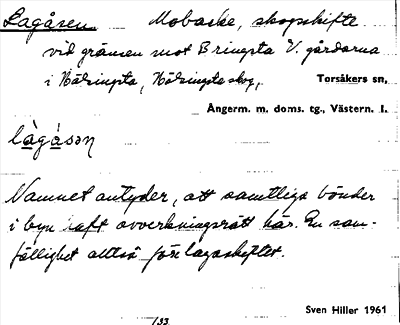 Lagåsen Mobacke, skogsskifte
vid gränsen mot Bringsta V. gårdarna
i Hälsingsta, Hälsingsta skog,. Torsåkers sn,
Ångerm. m. doms. tg., Västern. l.
làgàsən
Namnet antyder, att samtliga bönder
i byn haft avverkningsrätt här. En sam-
fällighet alltså före lagaskiftet.
Sven Hiller 1961
/33